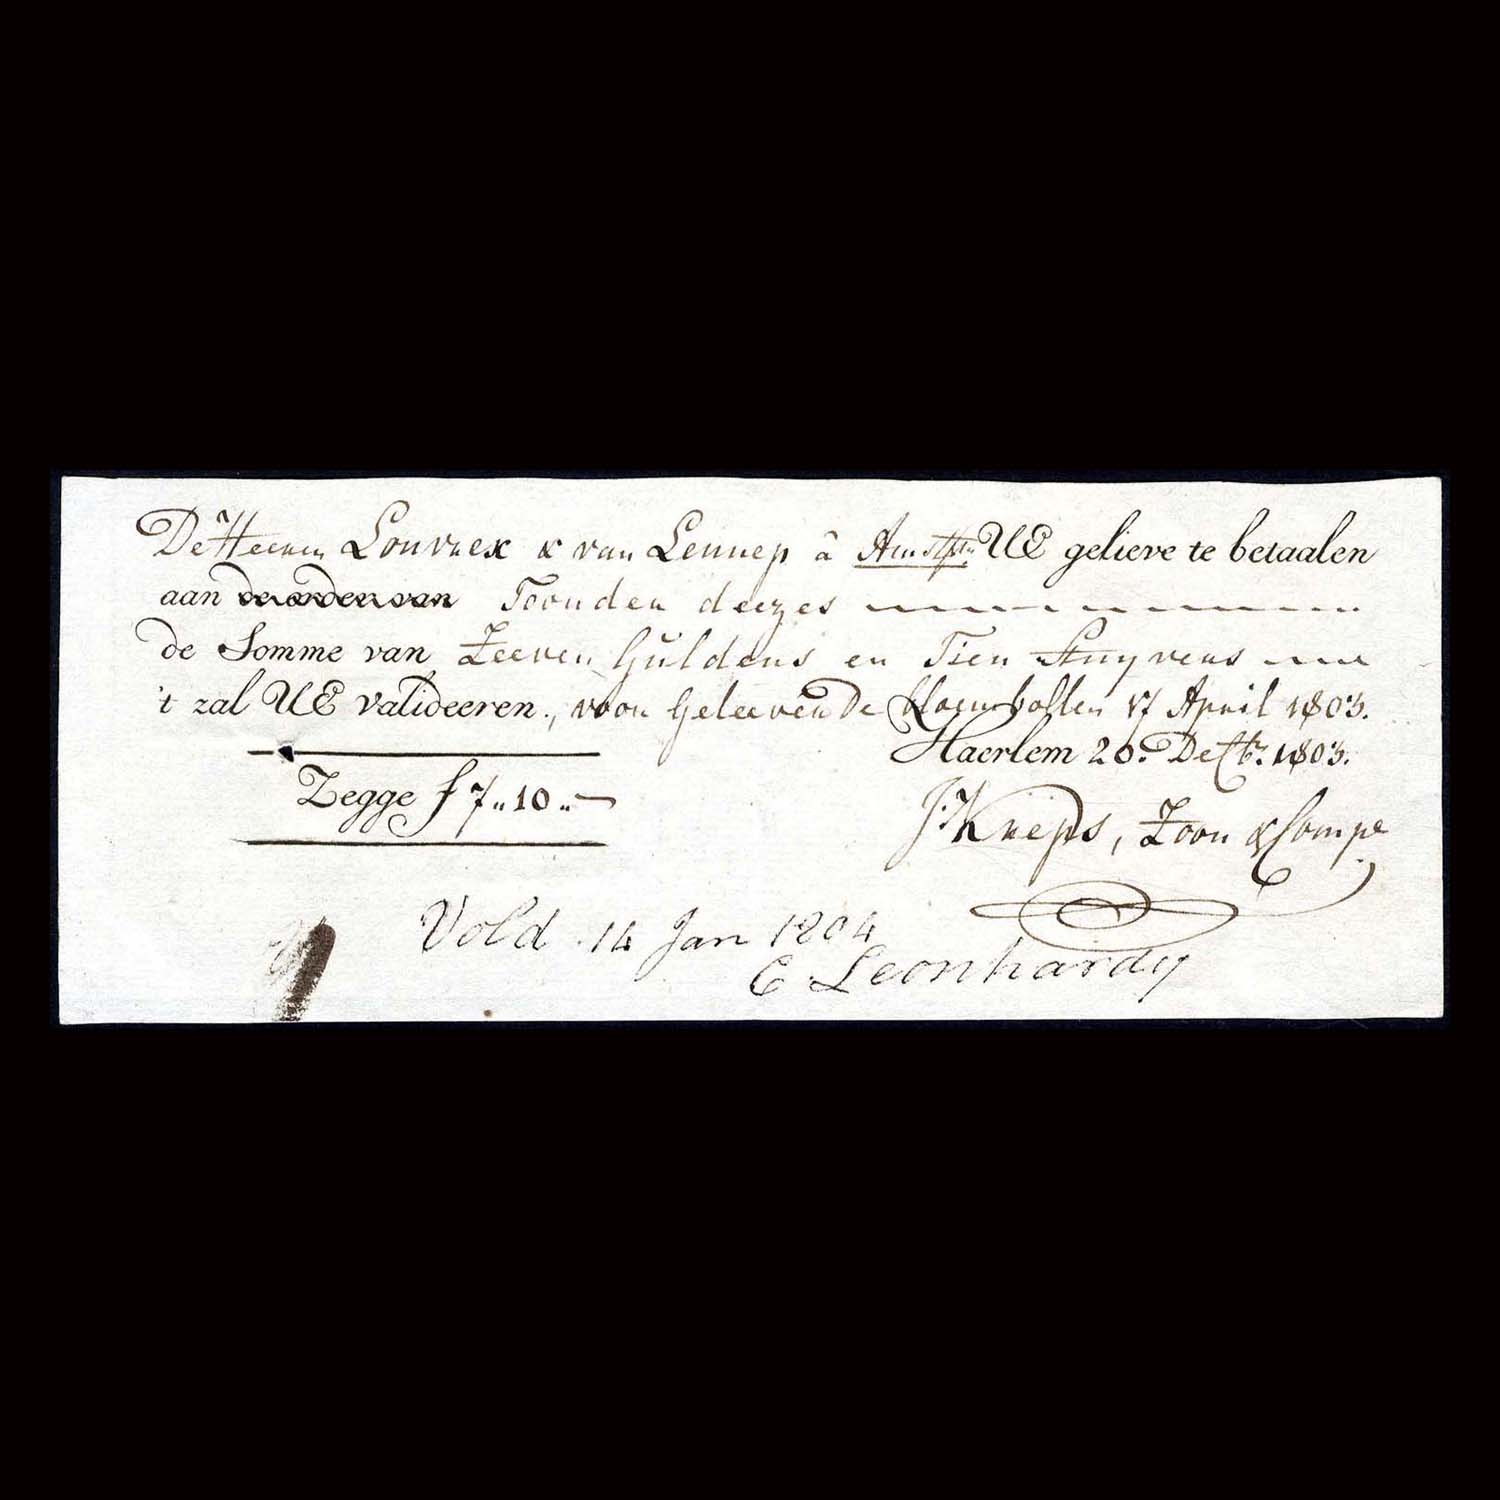 De Heeren Louvrex & van Lennep â Amst. UE gelieve te betaalen
aan de order van Toonder deezes
de Somme van Zeeven Guldens en Tien Stuyvers
't zal UE valideeren., voor Geleeverde Bloembollen 17 April 1803.
Haerlem 20. Decbr. 1803.
Zegge ƒ 7 „ 10 „ —
J: Kreps, Zoon & Compe
Vold 14 Jan 1804
C Leonhardy